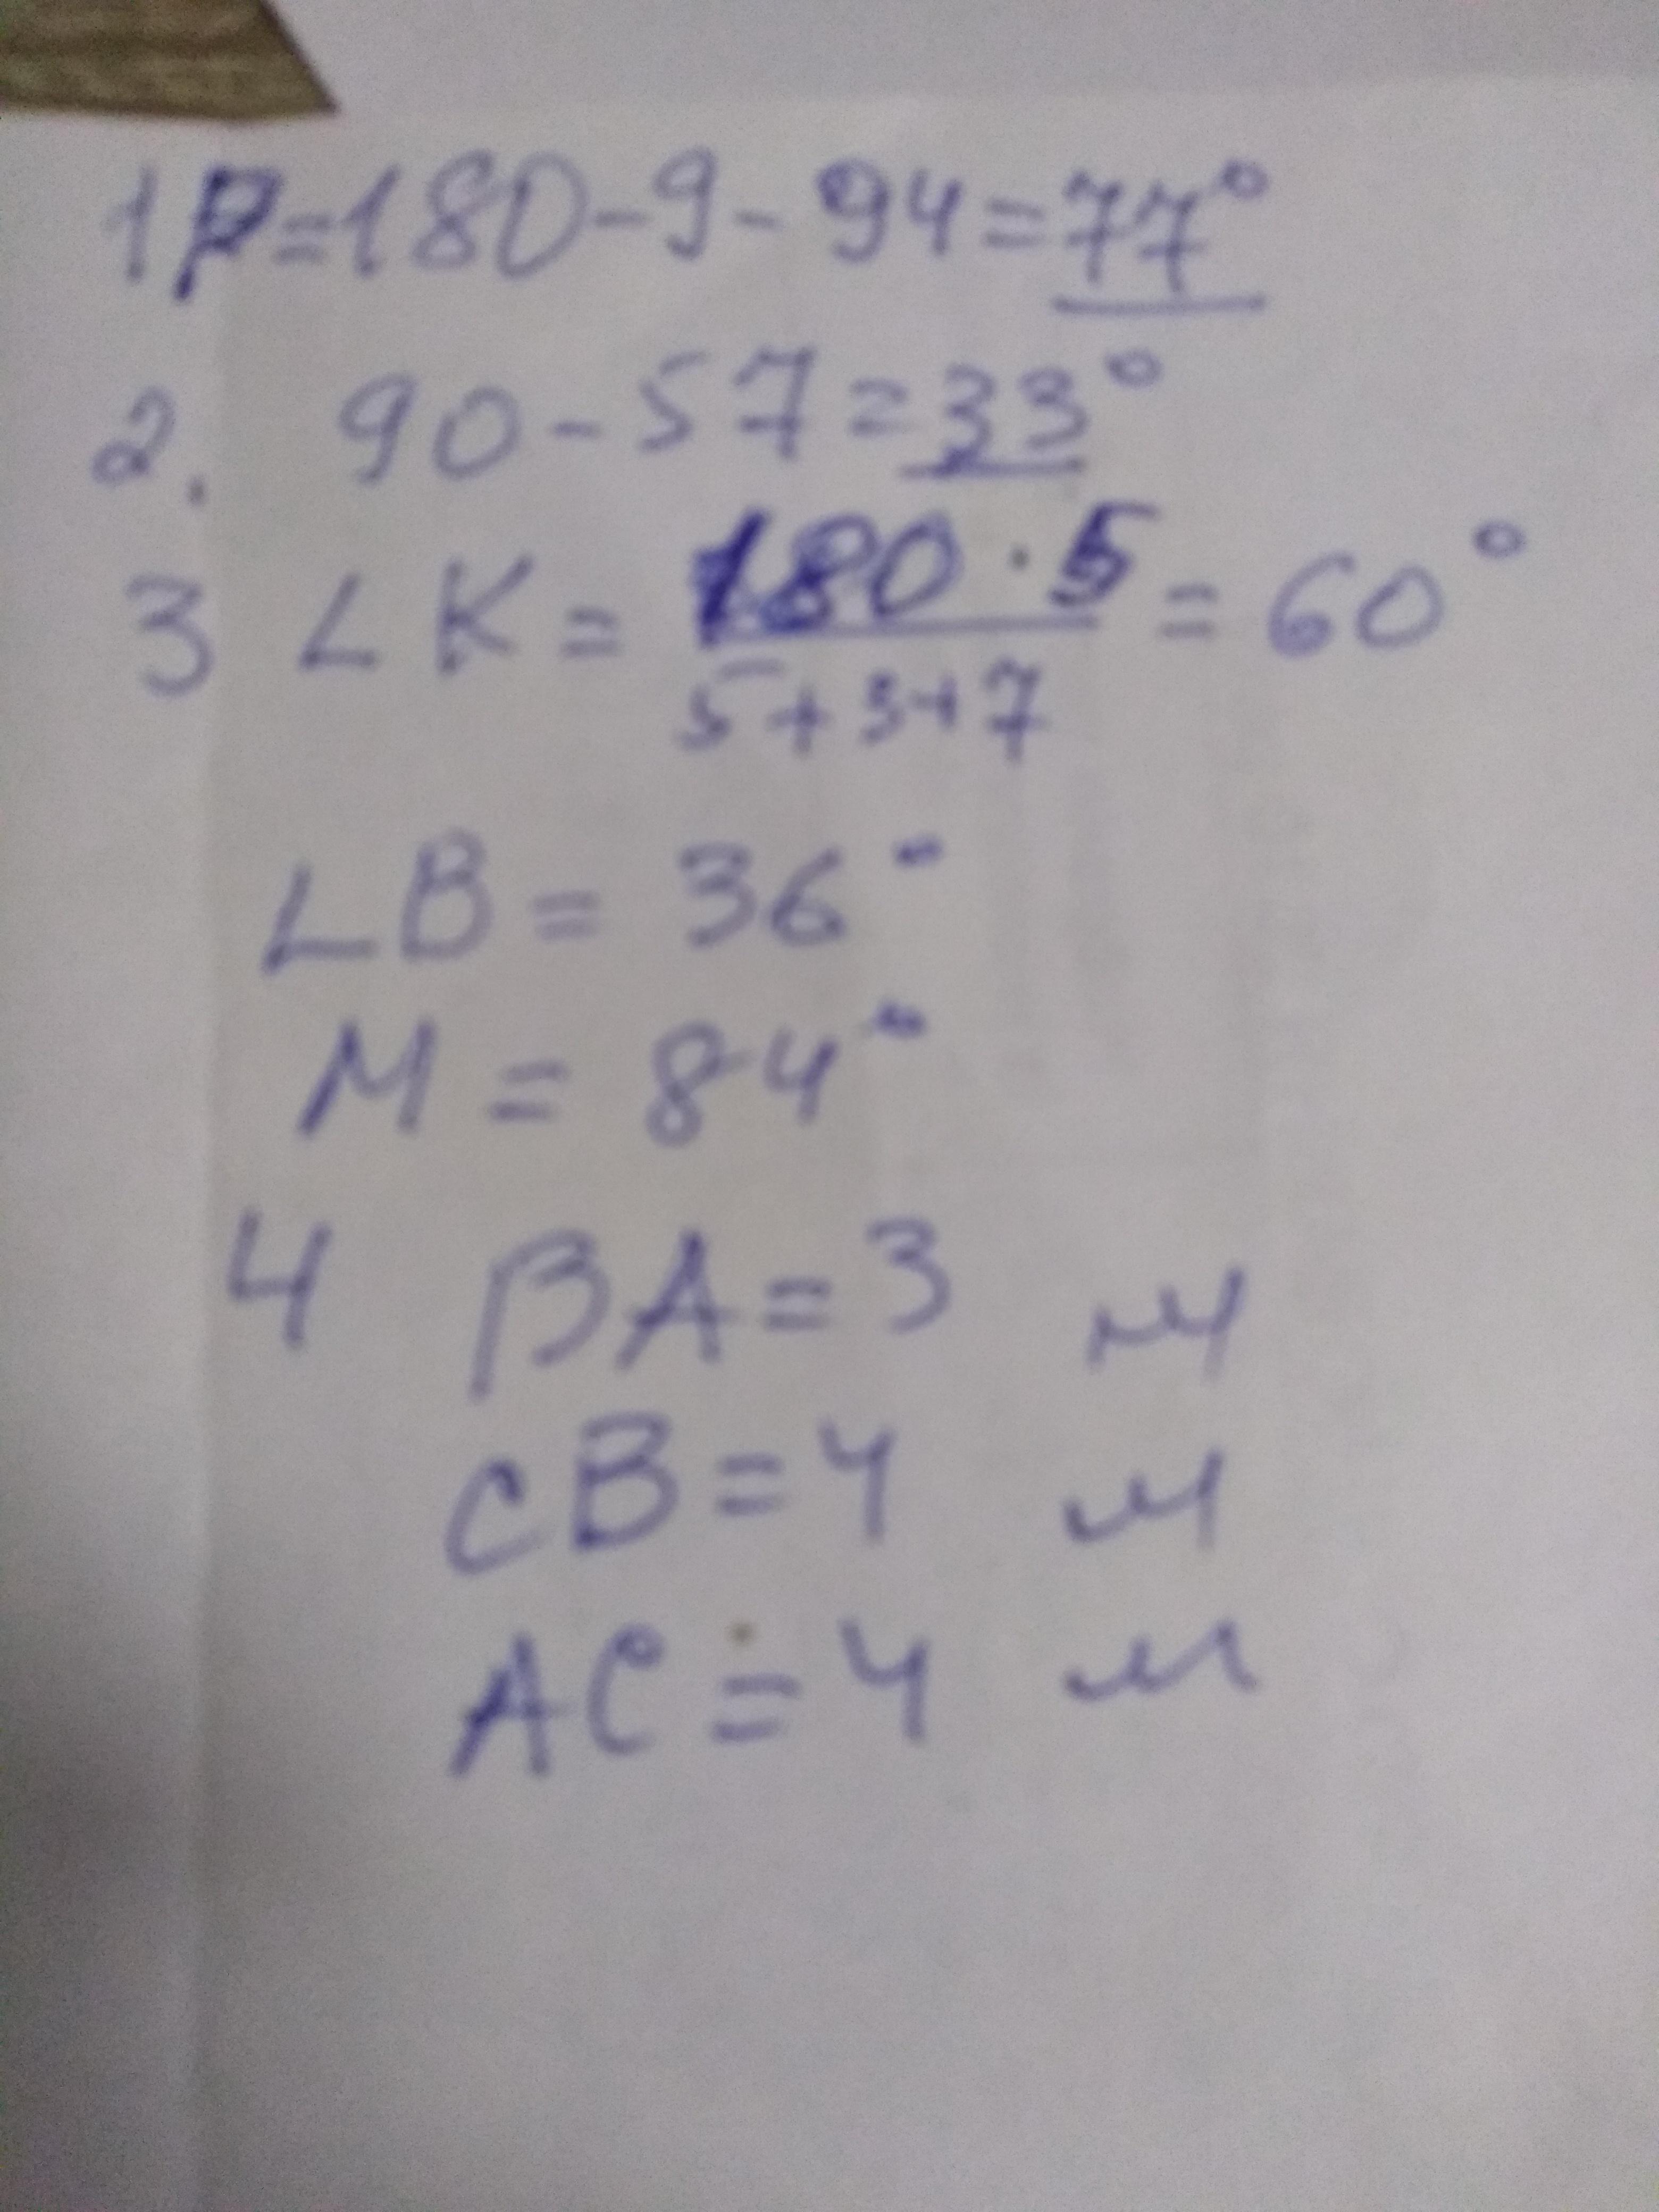 1 P=180-9-94=77°
2. 90-57=33°
3 ∠K= 180·5 = 60°
5+3+7
∠B= 36°
M = 84°
4 BA=3 м
CB=4 м
AC=4 м